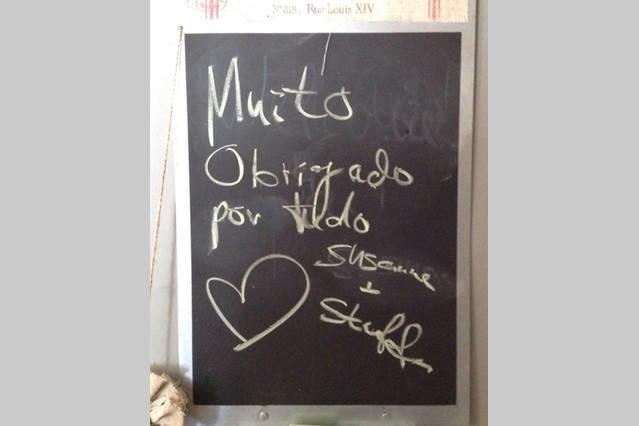 N°318. Rue Louis XIV
Muito
Obrigado
por tudo
Susanne
+